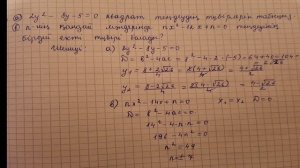 а) 2y² - 8y - 5 = 0 квадрат теңдеудің түбірлерін табыңыз
b) n-нің қандай мәндерінде nx² - 14x + n = 0 теңдеудің
бірдей екі түбірі болады?
Шешуі: а) 2y² - 8y - 5 = 0
D = b² - 4ac = 8² - 4·2·(-5) = 64 + 40 = 104
y₁ =
y₂ =
b) nx² - 14x + n = 0 x₁ = x₂ D = 0
D = b² - 4ac = 0
14² - 4·n·n = 0
196 - 4n² = 0
n² = 49
n = ± 7